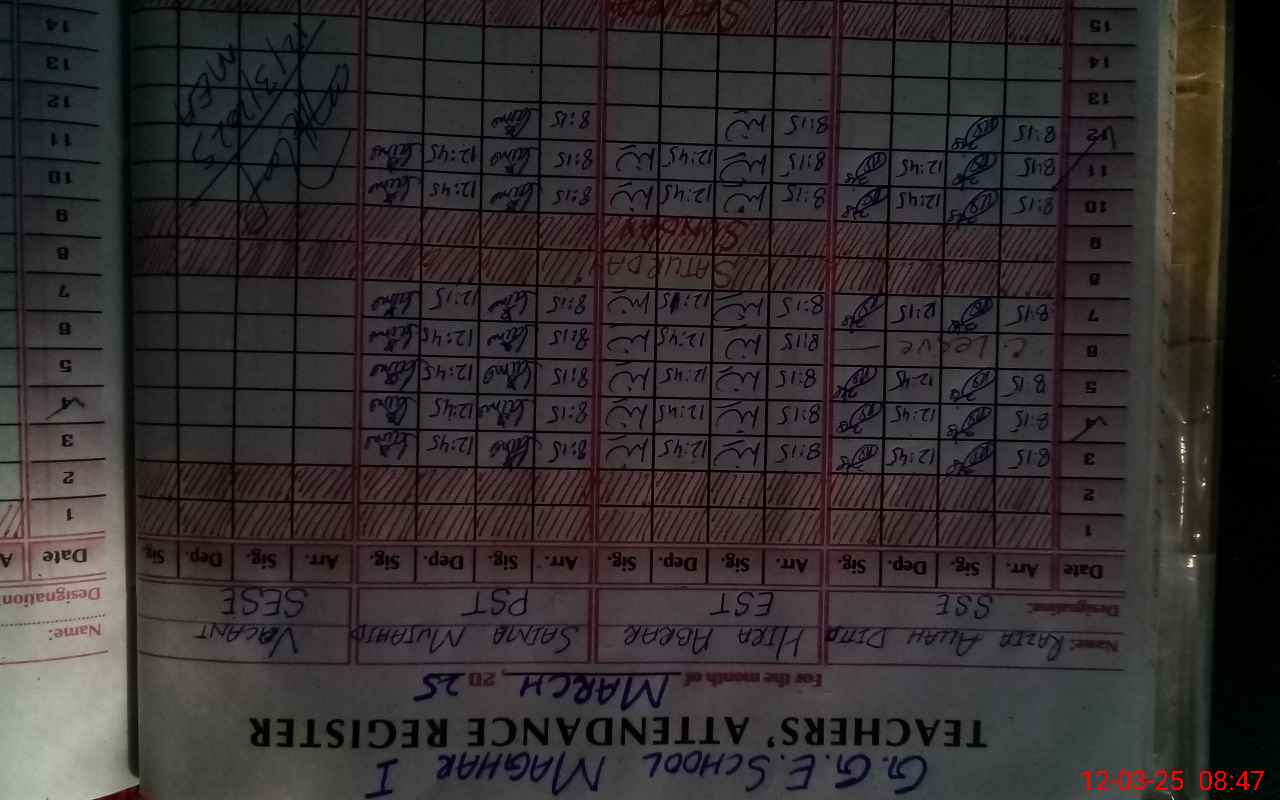 G.G.E. SCHOOL MAGHAR I
TEACHERS' ATTENDANCE REGISTER
For the month of MARCH, 20 25
Name: RAZIA ALLAH DITTA HIRA ABRAR SAIMA MUJAHID VACANT
Designation: SSE EST PST SESE
Date Arr. Sig. Dep. Sig. Arr. Sig. Dep. Sig. Arr. Sig. Dep. Sig. Arr. Sig. Dep. Sig.
1
2
3 8:15 12:45 8:15 12:45 8:15 12:45
4 8:15 12:45 8:15 12:45 8:15 12:45
5 8:15 12:45 8:15 12:45 8:15 12:45
6 C. Leave — 8:15 12:45 8:15 12:45
7 8:15 12:15 8:15 12:15 8:15 12:15
8 SATURDAY
9 SUNDAY
10 8:15 12:45 8:15 12:45 8:15 12:45
11 8:15 12:45 8:15 12:45 8:15 12:45
12 8:15 8:15 8:15
13
14
15 SATURDAY
12/3/2025
Name:
Designation
Date A
1
2
3
4
5
6
7
8
9
10
11
12
13
14
12-03-25 08:47